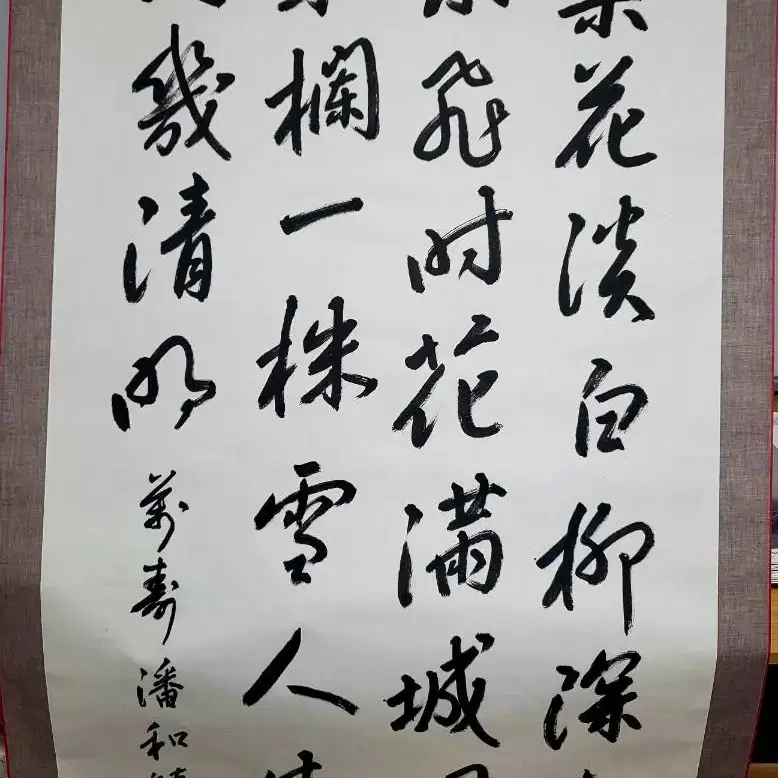 花淡白柳深
飛时花滿城
欄一株雪人
幾清明
萬寿潘和